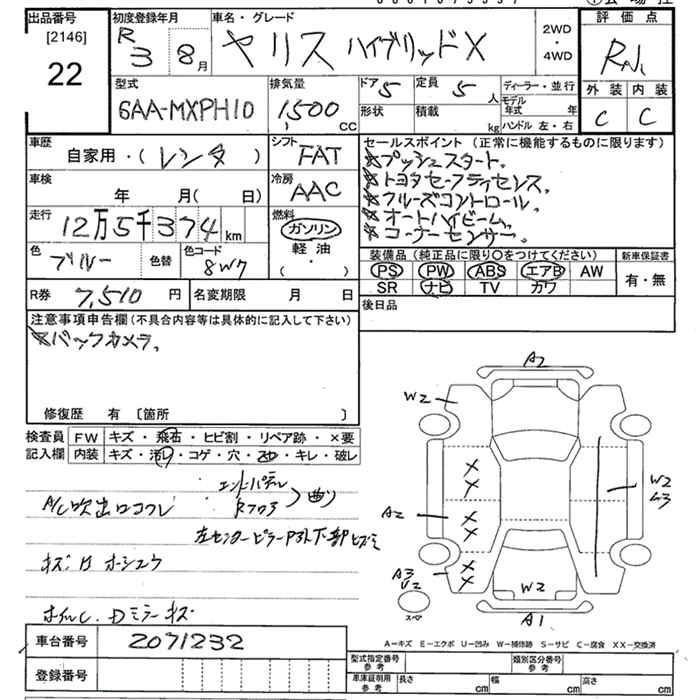 出品番号
[2146]
22
初度登録年月
R 3 8月
車名・グレード
ヤリス ハイブリッドX
2WD
・
4WD
評価点
外装 内装
C C
型式
6AA-MXPH10
排気量
1500 CC
ドア 5
定員 5 人
形状
積載 kg
ディーラー・並行
モデル年式 年
ハンドル 左・右
車歴
自家用・(レンタ)
シフト
FAT
車検
年 月(日)
冷房
AAC
走行
12万5千374 km
燃料
ガソリン
軽・油
・( )
色
ブルー
色替
色コード
8W7
R券 7,510 円
名変期限 月 日
セールスポイント (正常に機能するものに限ります)
※プッシュスタート。
※トヨタセーフティセンス。
※クルーズコントロール。
※オートハイビーム。
※コーナーセンサー。
装備品(純正品に限り○をつけてください)
PS PW ABS エアB AW
SR ナビ TV カワ
新車保証書
有・無
後日品
注意事項申告欄(不具合内容等は具体的に記入して下さい)
※バックカメラ。
修復歴 有 〔箇所 〕
検査員記入欄
FW キズ・飛石・ヒビ割・リペア跡・×要
内装 キズ・汚レ・コゲ・穴・スレ・キレ・破レ
A/C吹出口コワレ
エンドパネル
Rフロア
曲り
左センターピラーP外下部ヒズミ
キズ凹ホシュウ
ホイルC. Dミラーキズ
A2
W2
A2
A3
W2
A1
スペア
車台番号 2071232
登録番号
A=キズ E=エクボ U=凹み W=補修跡 S=サビ C=腐食 XX=交換済
型式指定番号 参考
類別区分番号 参考
車庫証明用 参考
長さ cm
幅 cm
高さ cm